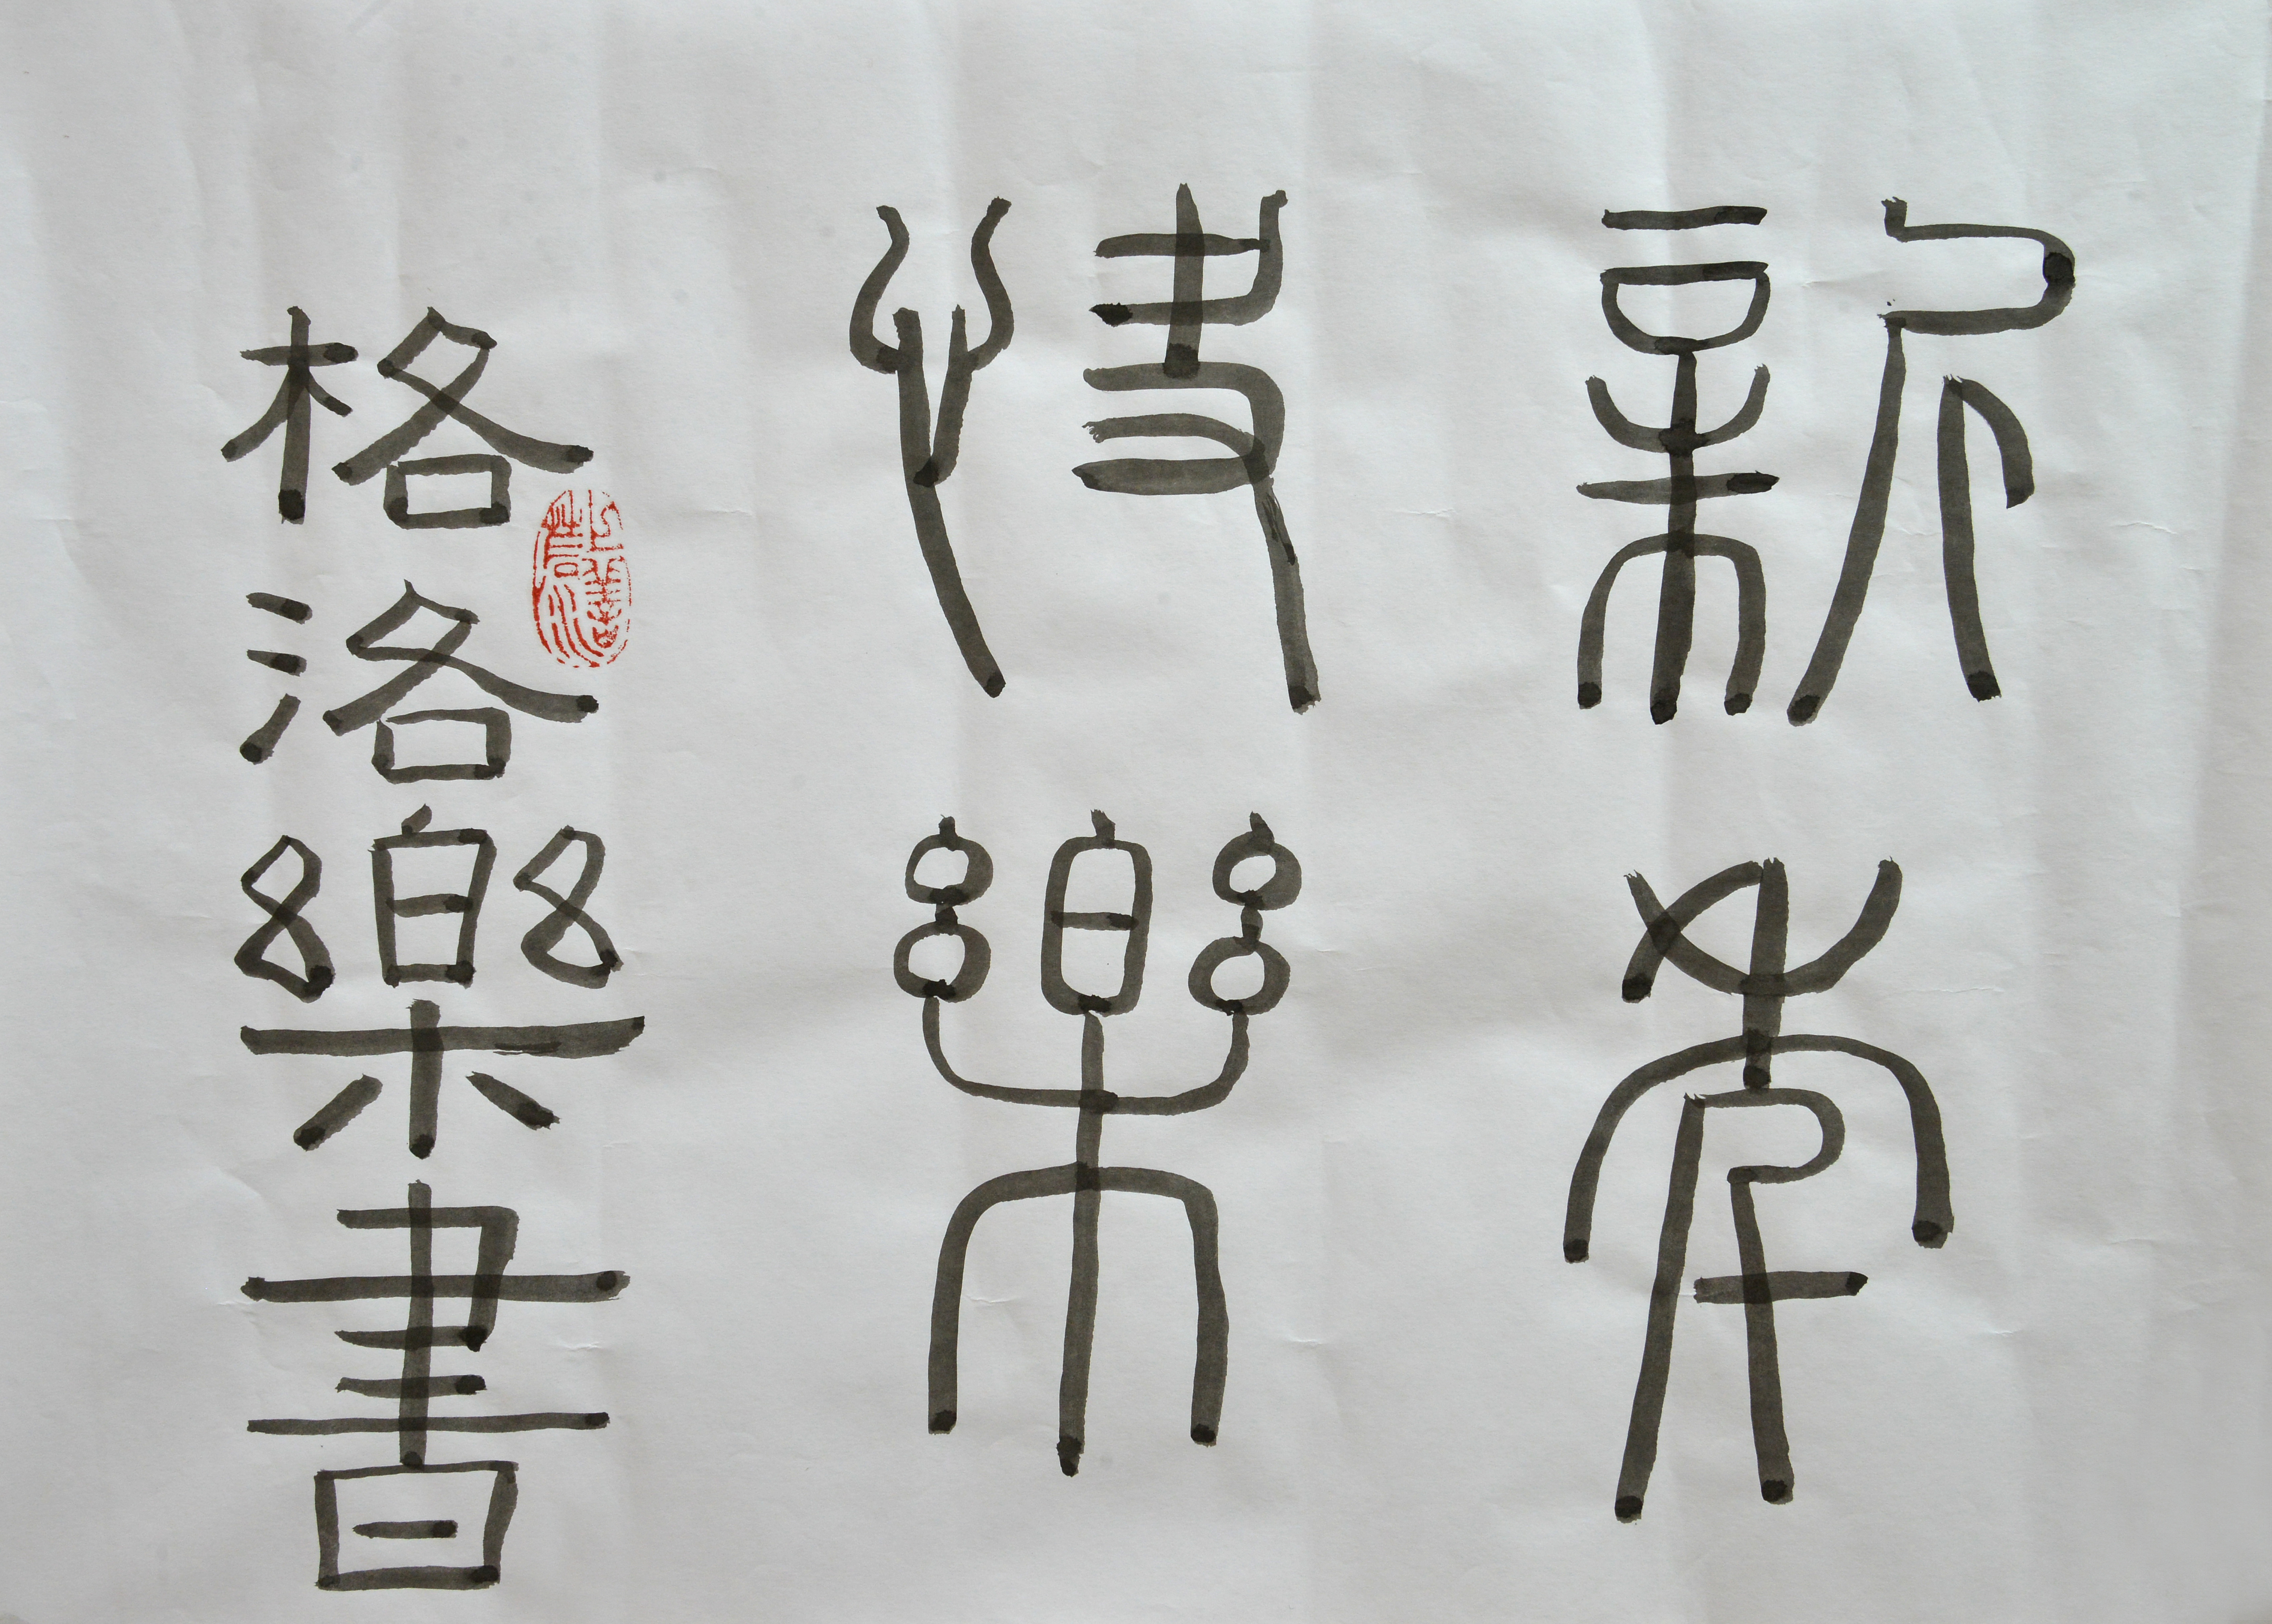 新年
快樂
格洛樂書